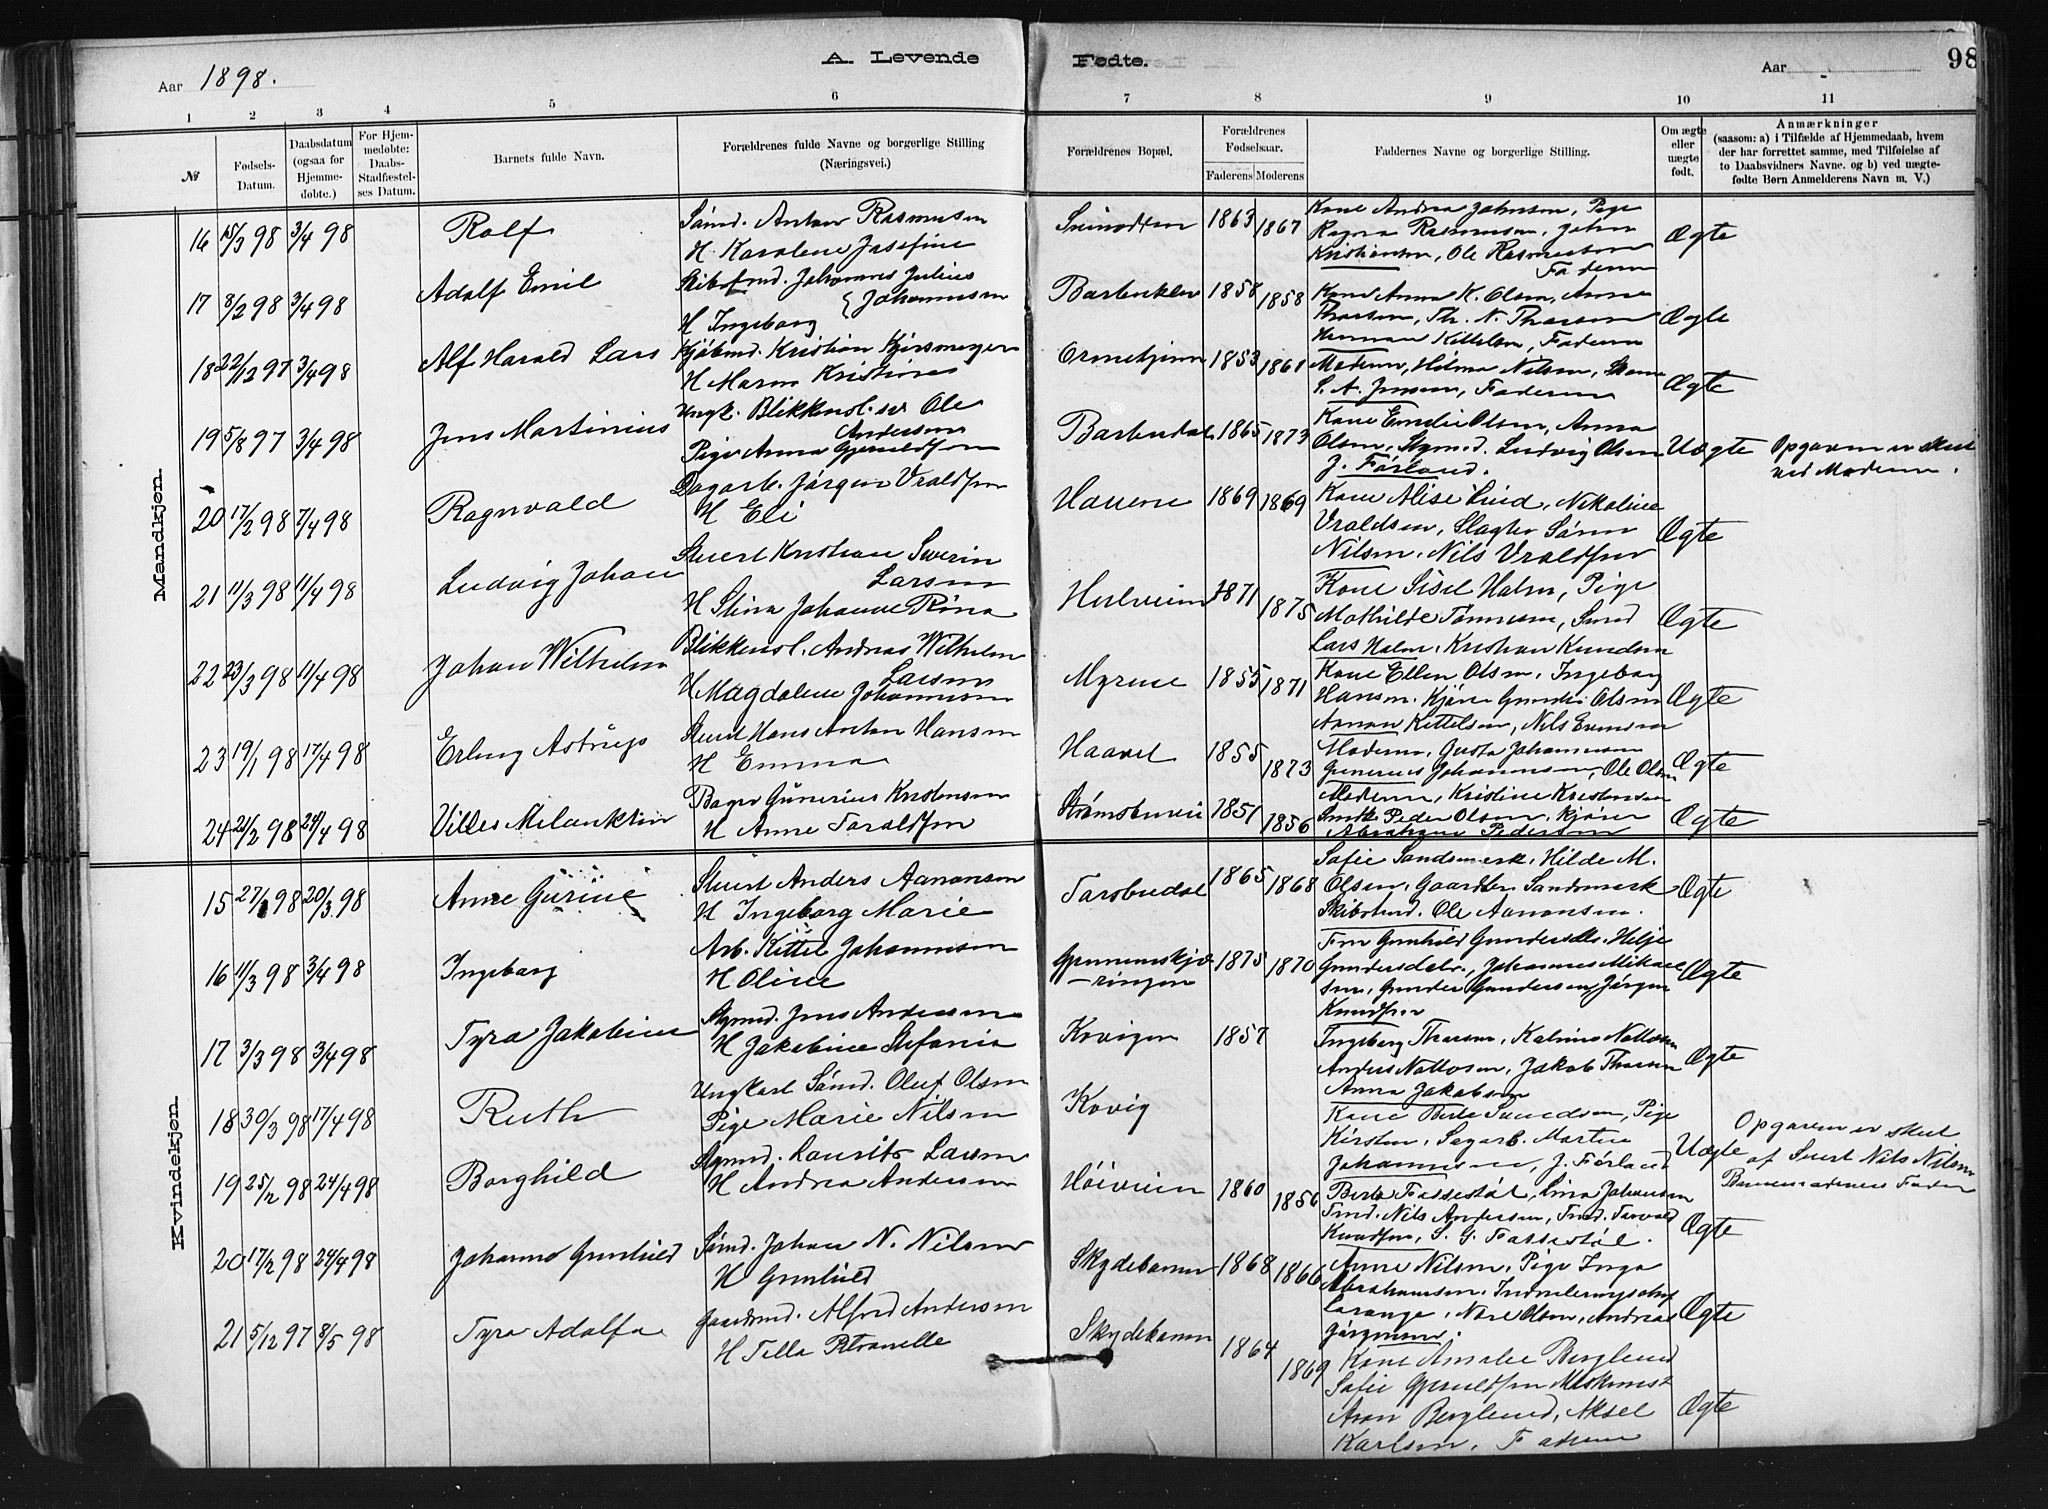 A. Levende Fødte.
98
Aar 1898.
Aar
1 2 3 4 5 6 7 8 9 10 11
№
Fødsels-Datum.
Daabsdatum (ogsaa for Hjemmedøbte.)
For Hjemmedøbte: Daabs-Stadfæstelses Datum.
Barnets fulde Navn.
Forældrenes fulde Navne og borgerlige Stilling (Næringsvei.)
Forældrenes Bopæl.
Forældrenes Fødselsaar.
Faderens Moderens
Faddernes Navne og borgerlige Stilling.
Om ægte eller uægte født.
Anmærkninger
(saasom: a) i Tilfælde af Hjemmedaab, hvem der har forrettet samme, med Tilføielse af to Daabsvidners Navne. og b) ved uægtefødte Børn Anmelderens Navn m. V.)
Mandkjøn.
16 15/3 98 3/4 98 Rolf
Sømd. Anton Rasmusen
H. Karoline Josefine
1863 1867
Kone Andrea Johnsen, Pige
Ragna Rasmusen, John
Kristiansen, Ole Rasmusen
Faderen
Ægte
17 8/2 98 3/4 98 Adolf Emil
Skibstmd. Johannes Julius
Johannesen
H Ingeborg
1858 1858
Kone Anna K. Olsen, Anna
Thorsen, Th. N. Thorsen
Herman Kittelsen, Faderen
Ægte
18 22/12 97 3/4 98 Alf Harald Lars
Kjøbmd. Kristian
H Maren Kristine
1853 1861
Moderen, Hilma Nilsen,
S. A. Jensen, Faderen
Ægte
19 5/8 97 3/4 98 Jens Martinius
Ungk. Blikkensl. sv Ole
Andersen
Pige Anna Gjeruldsen
Barbudal 1865 1873
Kone Emilie Olsen, Anna
Olsen, Styrmd. Ludvig Olsen
J. Førland.
Uægte
Opgaven er skeet
ved Moderen.
20 17/2 98 7/4 98 Ragnvald
Dagarb. Jørgen Vraldsen
H Eli
Havene 1869 1869
Kone Alise Lind, Nikoline
Vraldsen, Slagter Søren
Nilsen, Nils Vraldsen
Ægte
21 11/3 98 11/4 98 Ludvig Johan
Stuert Kristian Severin
Larsen
H Stina Johanne Rina
1871 1875
Kone Sisel Holm, Pige
Mathilde Tønnesen, Smed
Lars Holm, Kristian Knudsen
Ægte
22 23/3 98 11/4 98 Johan Wilhelm
Blikkensl. Andreas Wilhelm
Larsen
H Magdalene Johannesen
Myrene 1855 1871
Kone Ellen Olsen, Ingeborg
Hansen, Kjører Gunder Olsen
Aanon Kittelsen, Nils Evensen
Ægte
23 19/1 98 17/4 98 Erling Astrup
Stuert Hans Anton Hansen
H Emma
Haavet 1855 1873
Moderen, Gusta Johannesen
Gunerius Johannesen, Ole Olsen
Ægte
24 21/2 98 24/4 98 Villes Melankton
Bager Gunerius Kristensen
H Anne Taraldsen
Strømsbuvei 1851 1856
Moderen, Kristine Kristensen
Smed Peder Olsen, Kjører
Abraham Pedersen
Ægte
Kvindekjøn.
15 27/1 98 20/3 98 Anne Gurine
Stuert Anders Aanonsen
H Ingeborg Marie
Torsbudal 1865 1868
Sofie Sandsmerk, Hilde M.
Olsen, Gaardbr. Sandsmerk
Skibstmd. Ole Aanonsen.
Ægte
16 11/3 98 3/4 98 Ingeborg
Arb. Kittel Johannesen
H Oline
1875 1870
Fru Gunhild Gundersdtr. Helje
Gundersdtr., Johannes Mikael
sen, Gunder Gundersen, Jørgen
Knudsen
Ægte
17 3/3 98 3/4 98 Tyra Jakobine
Styrmd. Jens Andersen
H Jakobine Stefania
Kvigen 1857
Ingeborg Thorsen, Katrine Nottosen
Anders Nottosen, Jakob Thorsen
Anna Jakobsen
Ægte
18 30/3 98 17/4 98 Ruth
Ungkarl Sømd. Oluf Olsen
Pige Marie Nilsen
Kvvig
Kone Berte Svendsen, Pige
Kirsten, Sagarb. Martin
Johannesen, J. Førland
Uægte
Opgaven er skeet
af Stuert Nils Nilsen
Barnemoderens Fader
19 25/2 98 24/4 98 Borghild
Styrmd. Laurits Larsen
H Andrea Andersen
Høiveien 1860 1856
Berte Fossestøl, Lina Johansen
Tmd. Nils Andersen, Tmd. Torvald
Knudsen, S. G. Fossestøl.
Ægte
20 17/2 98 24/4 98 Johanne Gunhild
Sømd. Johan N. Nilsen
H Gunhild
Skydebanen 1868 1866
Anne Nilsen, Pige Inga
Abrahamsen, Indrulleringschef
Lorange, Nore Olsen, Andreas
Jørgensen.
Ægte
21 5/12 97 8/5 98 Tyra Adolfa
Gaardmd. Alfred Andersen
H Tella Petronelle
Skydebanen 1864 1869
Kone Amalie Berglund
Sofie Gjeruldsen, Maskinist
Aron Berglund, Aksel
Karlsen, Faderen
Ægte